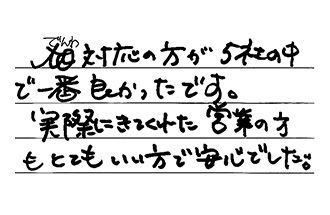 でんわ対応の方が5社の中
で一番良かったです。
実際にきてくれた営業の方
もとてもいい方で安心でした。